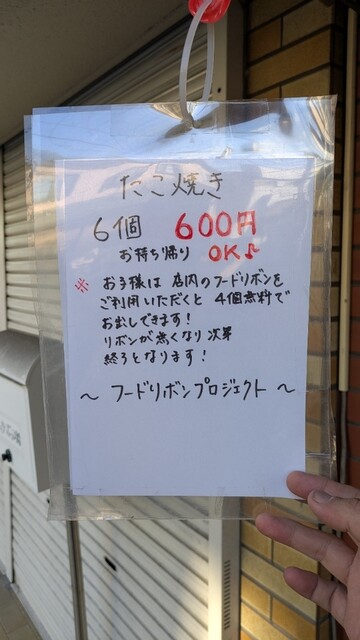 たこ焼き
6個 600円
お持ち帰り OK♪
※ お子様は 店内のフードリボンを
ご利用いただくと 4個無料で
お出しできます!
リボンが無くなり次第
終りとなります!
~ フードリボンプロジェクト ~